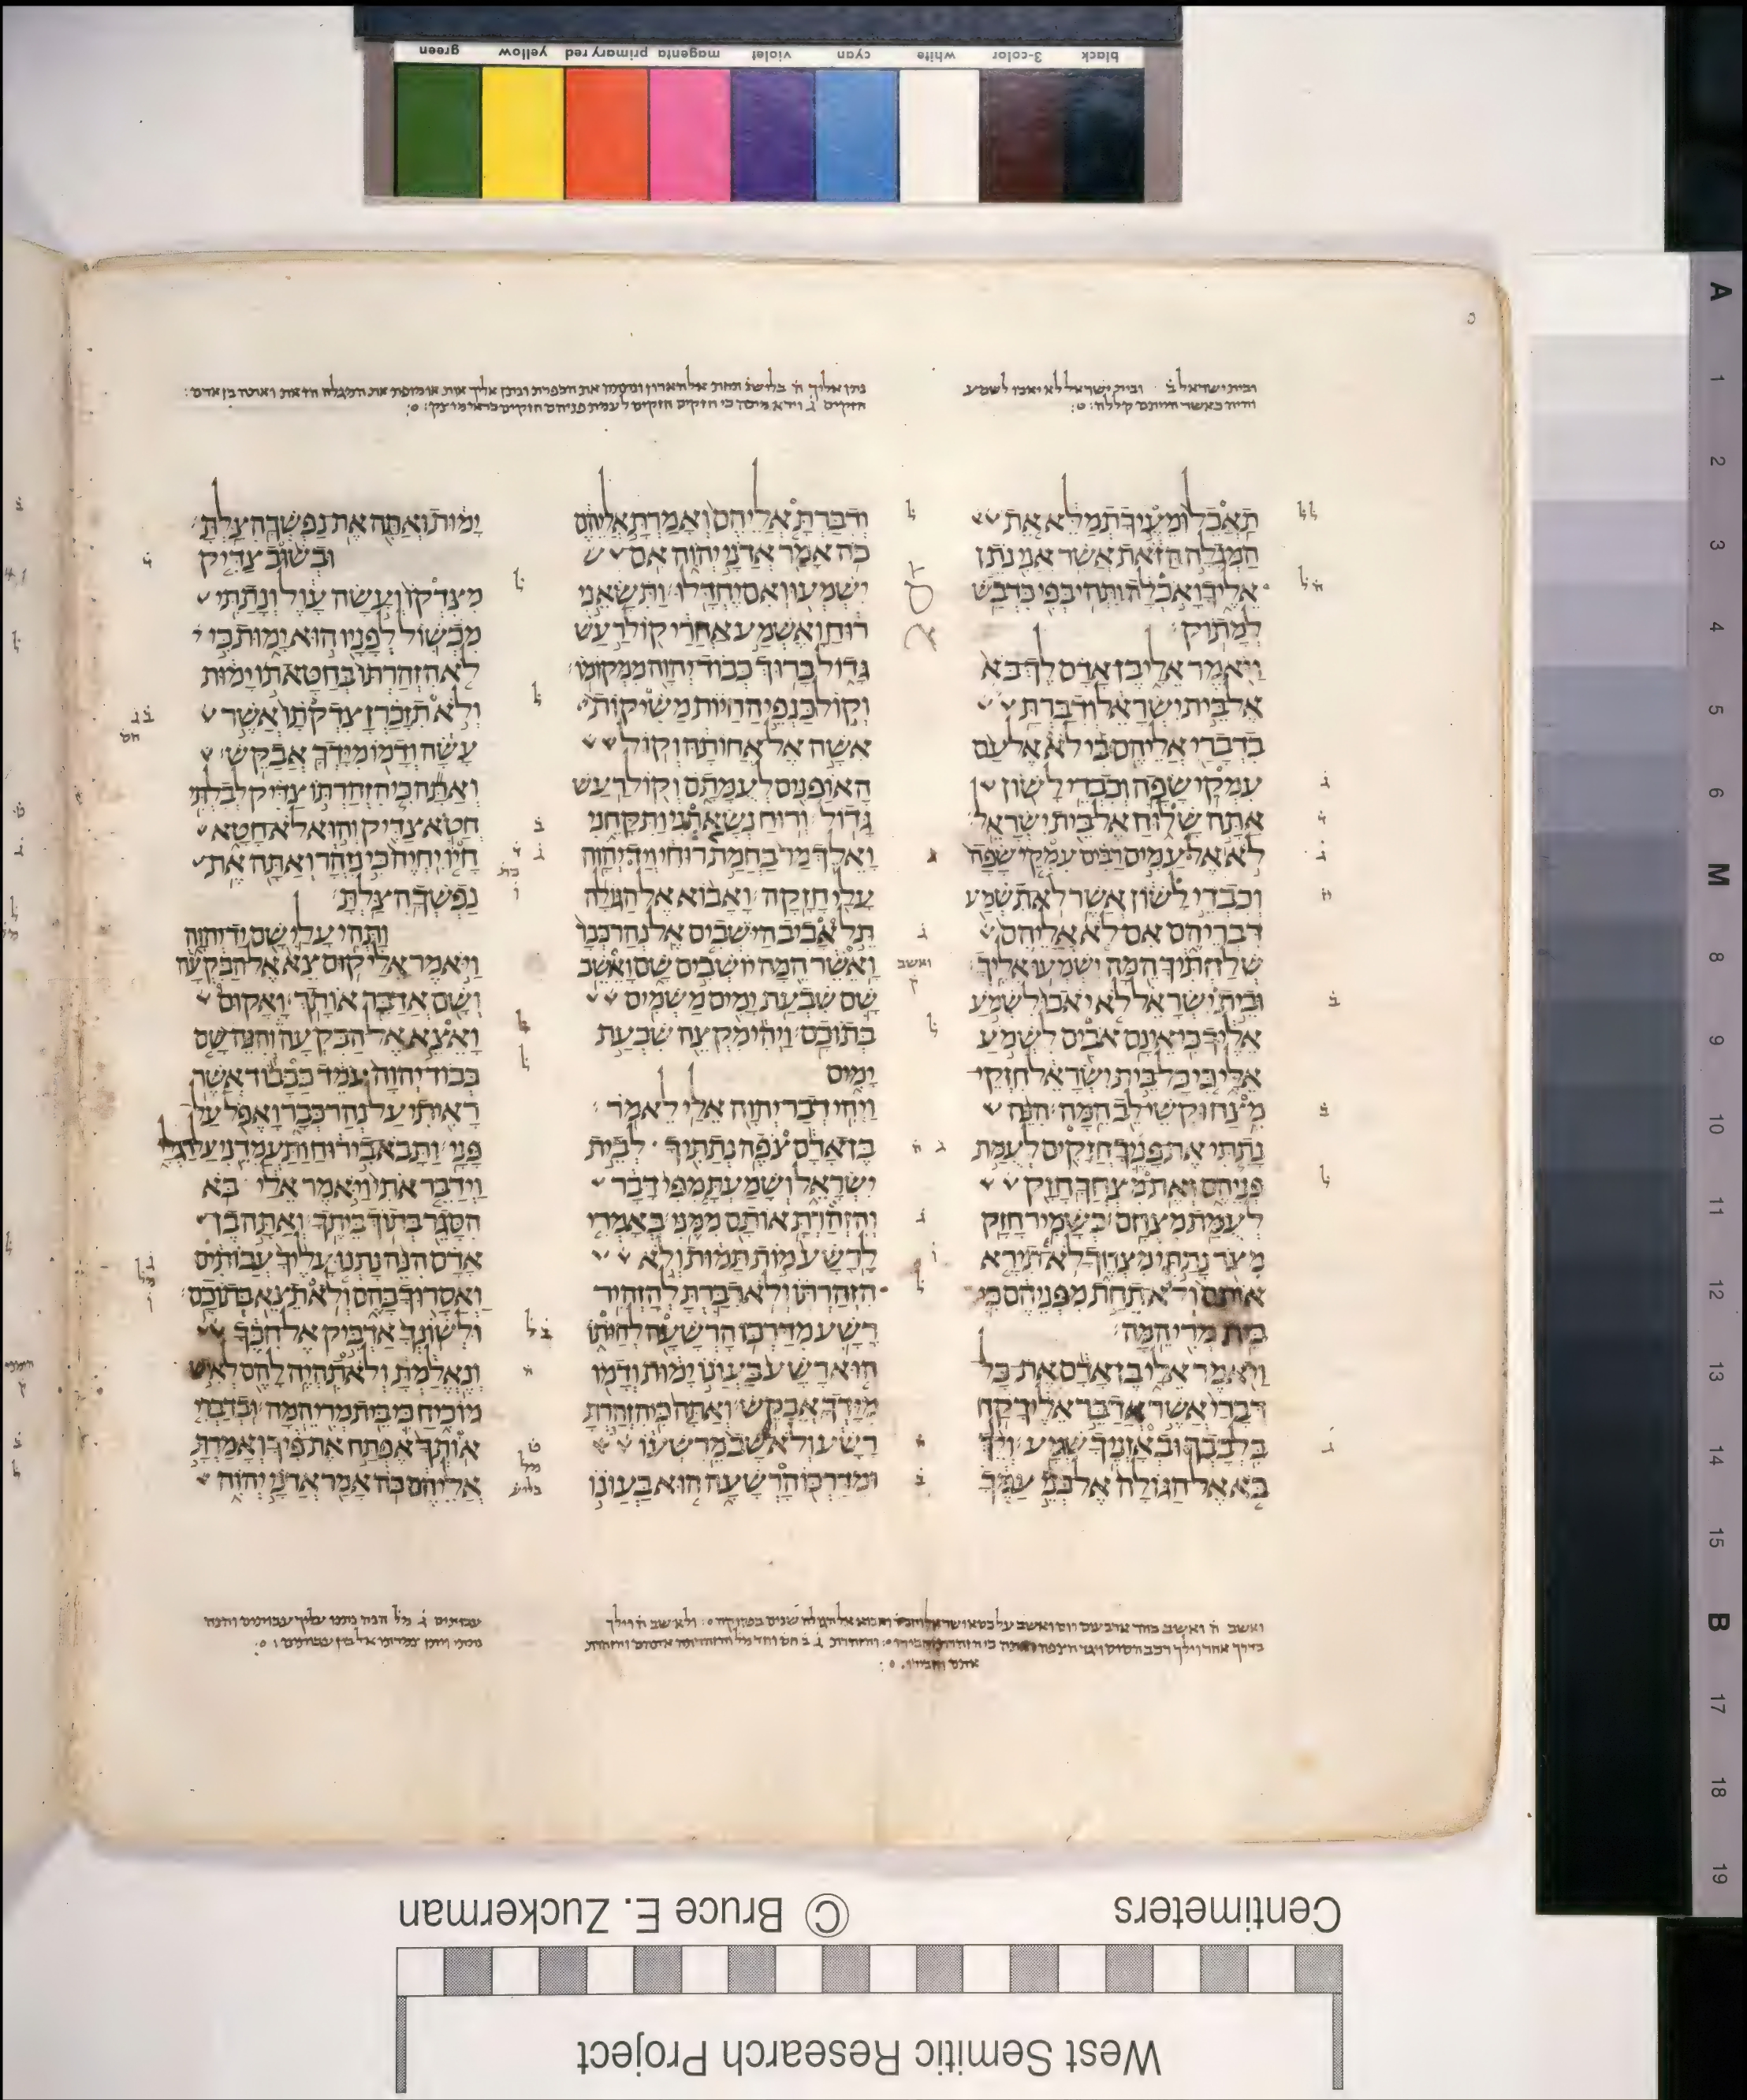 green yellow primary red magenta violet cyan white 3-color black
ובית ישראל ב̇ ובית ישראל לא יאבו לשמע
והיה כאשר הייתם קללה
תאכל ומעיך תמלא את
המגלה הזאת אשר אני נתן
אליך ואכלה ותהי בפי כדבש
למתוק
ויאמר אלי בן אדם לך בא
אל בית ישראל ודברת
בדברי אליהם כי לא אל עם
עמקי שפה וכבדי לשון
אתה שלוח אל בית ישראל
לא אל עמים רבים עמקי שפה
וכבדי לשון אשר לא תשמע
דבריהם אם לא אליהם
שלחתיך המה ישמעו אליך
ובית ישראל לא יאבו לשמע
אליך כי אינם אבים לשמע
אלי כי כל בית ישראל חזקי
מצח וקשי לב המה הנה
נתתי את פניך חזקים לעמת
פניהם ואת מצחך חזק
לעמת מצחם כשמיר חזק
מצר נתתי מצחך לא תירא
אותם ולא תחת מפניהם כי
בית מרי המה
ויאמר אלי בן אדם את כל
דברי אשר אדבר אליך קח
בלבבך ובאזניך שמע ולך
בא אל הגולה אל בני עמך
ודברת אליהם ואמרת אליהם
כה אמר אדני יהוה אם
ישמעו ואם יחדלו ותשאני
רוח ואשמע אחרי קול רעש
גדול ברוך כבוד יהוה ממקומו
וקול כנפי החיות משיקות
אשה אל אחותה וקול
האופנים לעמתם וקול רעש
גדול ורוח נשאתני ותקחני
ואלך מר בחמת רוחי ויד יהוה
עלי חזקה ואבוא אל הגולה
תל אביב הישבים אל נהר כבר
ואשר המה יושבים שם ואשב
שם שבעת ימים משמים
בתוכם ויהי מקצה שבעת
ימים
ויהי דבר יהוה אלי לאמר
בן אדם צפה נתתיך לבית
ישראל ושמעת מפי דבר
והזהרת אותם ממני באמרי
לרשע מות תמות ולא
הזהרתו ולא דברת להזהיר
רשע מדרכו הרשעה לחיתו
הוא רשע בעונו ימות ודמו
מידך אבקש ואתה כי הזהרת
רשע ולא שב מרשעו
ומדרכו הרשעה הוא בעונו
ימות ואתה את נפשך הצלת
ובשוב צדיק
מצדקו ועשה עול ונתתי
מכשול לפניו הוא ימות כי
לא הזהרתו בחטאתו ימות
ולא תזכרן צדקתו אשר
עשה ודמו מידך אבקש
ואתה כי הזהרתו צדיק לבלתי
חטא צדיק והוא לא חטא
חיו יחיה כי נזהר ואתה את
נפשך הצלת
ותהי עלי שם יד יהוה
ויאמר אלי קום צא אל הבקעה
ושם אדבר אותך ואקום
ואצא אל הבקעה והנה שם
כבוד יהוה עמד ככבוד אשר
ראיתי על נהר כבר ואפל על
פני ותבא בי רוח ותעמדני על רגלי
וידבר אתי ויאמר אלי בא
הסגר בתוך ביתך ואתה בן
אדם הנה נתנו עליך עבותים
ואסרוך בהם ולא תצא בתוכם
ולשונך אדביק אל חכך
ונאלמת ולא תהיה להם לאיש
מוכיח כי בית מרי המה ובדברי
אותך אפתח את פיך ואמרת
אליהם כה אמר אדני יהוה
A 1 2 3 4 5 6 M 8 9 10 11 12 13 14 15 B 17 18 19
Centimeters © Bruce E. Zuckerman
West Semitic Research Project